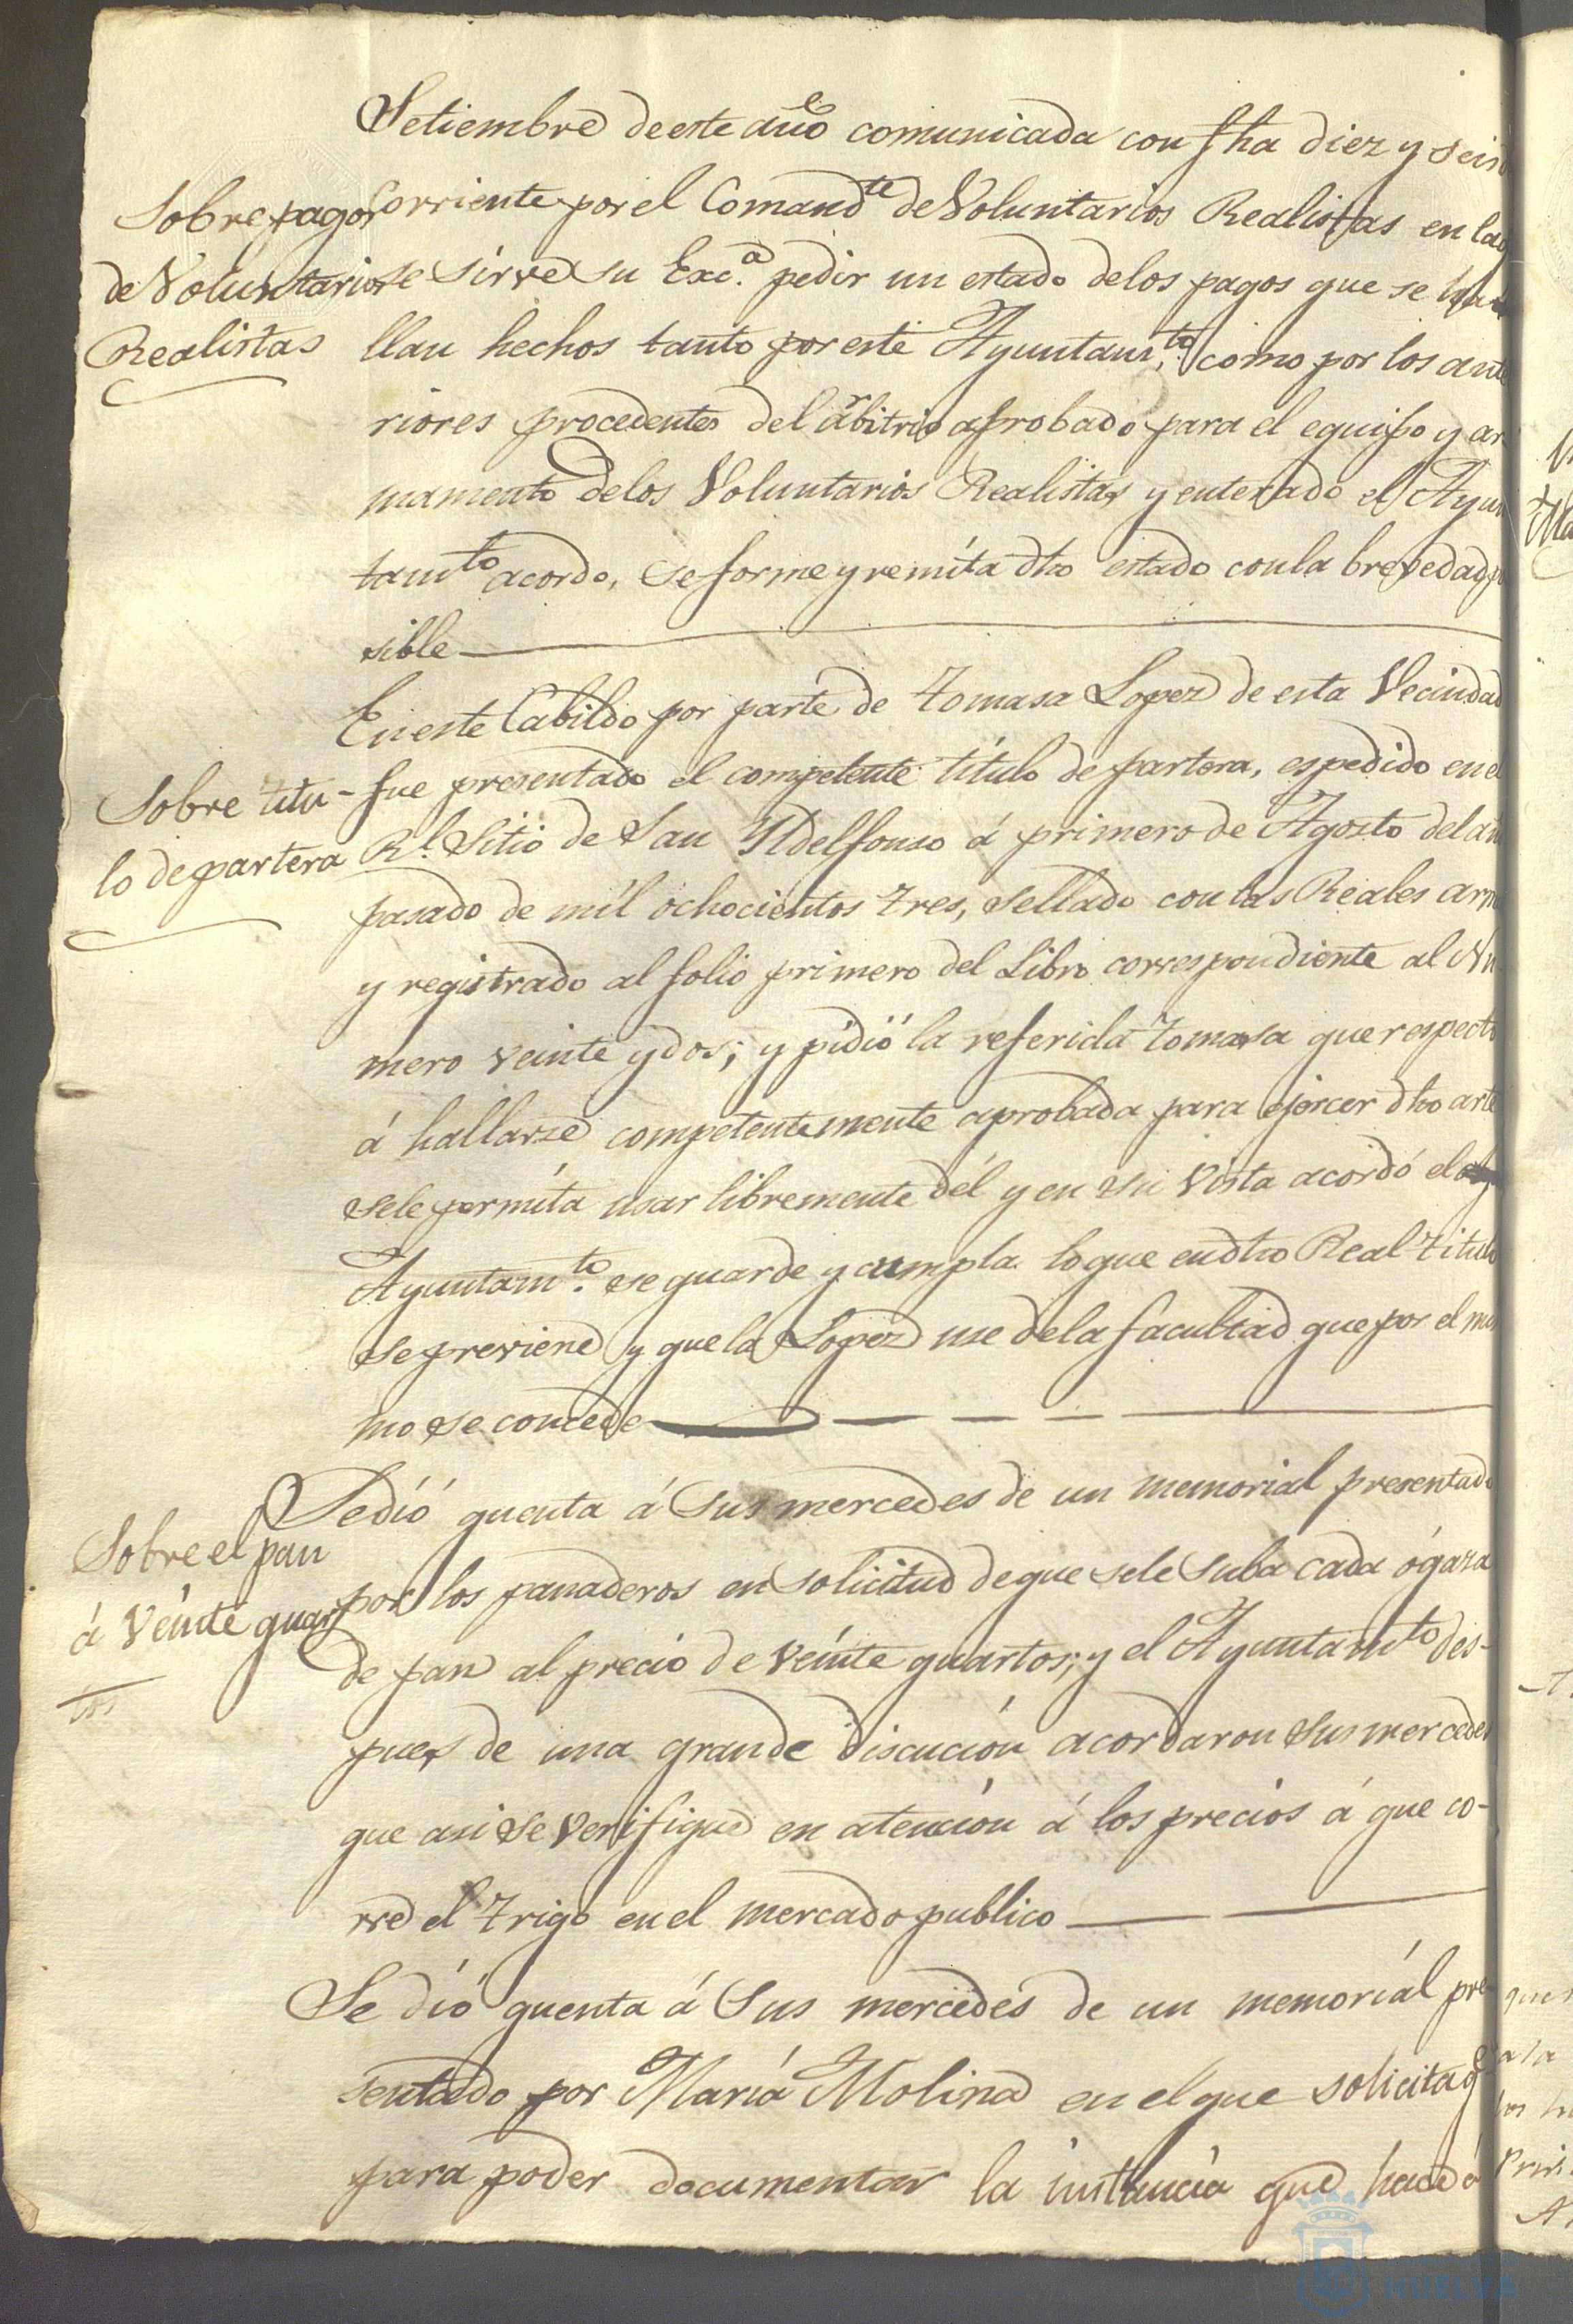 Setiembre de este año comunicada con fha diez y seis
Sobre pagos
de Voluntarios
Realistas
corriente por el Comandte de Voluntarios Realistas en la q
se sirve su Exca. pedir un estado delos pagos que se ha
llan hechos tanto por este Ayuntamto. como por los ante
riores procedentes del arbitrio aprobado para el equipo y ar
mamento delos Voluntarios Realistas y enterado el Ayun
tamto acordo, se forme y remita dho estado con la brevedad po
sible
En este Cabildo por parte de Tomasa Lopez de esta Vecindad
Sobre titu-
lo de partera
fue presentado el competente título de partera, espedido en el
Rl. Sitio de San Yldelfonso á primero de Agosto del año
pasado de mil ochocientos tres, sellado con las Reales arm
y registrado al folio primero del Libro correspondiente al Nu
mero veinte y dos; y pidió la referida Tomasa que respecto
á hallarse competentemente aprobada para ejercer dho arte
sele permíta usar libremente dél y en su vista acordó el
Ayuntamto. se guarde y cumpla lo que en dho Real Titulo
se previene y que la Lopez use de la facultad que por el mis
mo se concede
Se dió quenta á Sus mercedes de un memorial presentado
Sobre el pan
á veinte quar
tos
por los panaderos en solicitud de que sele suba cada ógaza
de pan al precio de veinte quartos; y el Ayuntamto des-
pues de una grande discución acordaron sus mercedes
que asi se verifique en atención á los precios á que co-
rre el trigo en el mercado publico
Se dió quenta á Sus mercedes de un memoriál pre-
sentado por María Molina en el que solicita q
para poder documentar la instancia que hace á
HUELVA